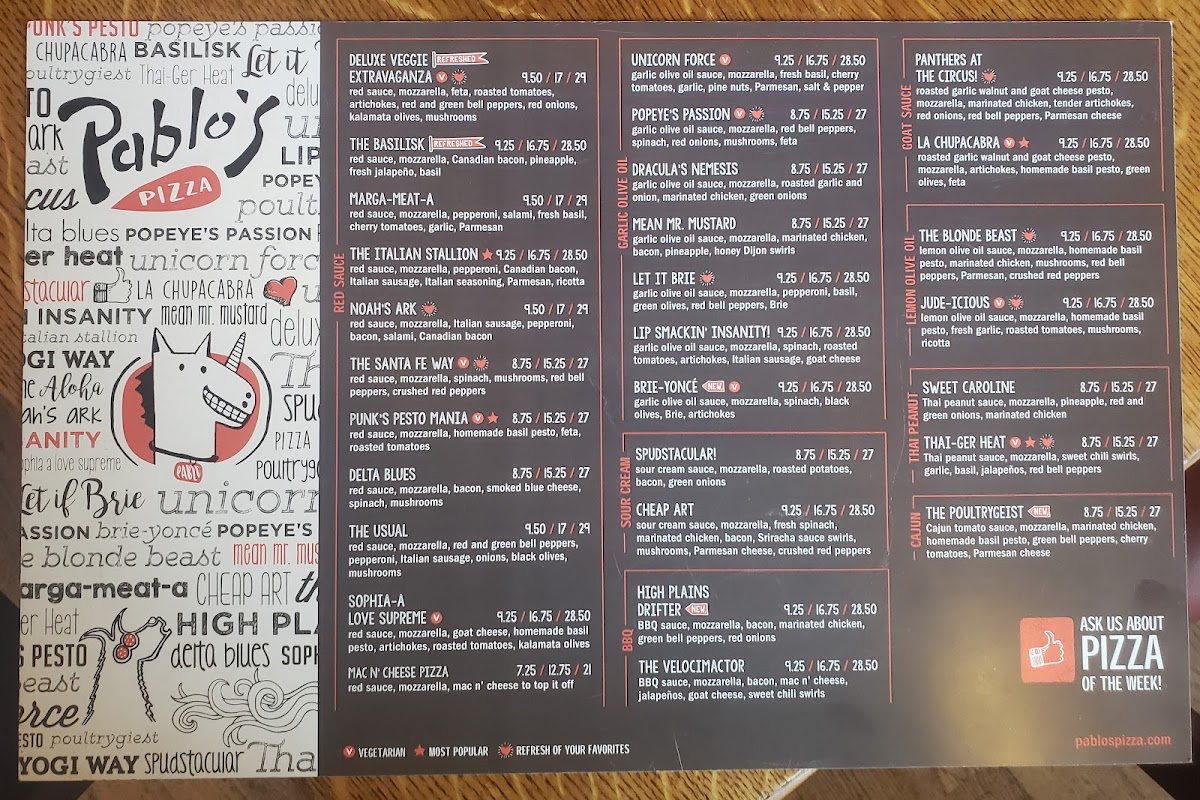 PUNK'S PESTO popeye's passi
CHUPACABRA BASILISK Let it
poultrygiest Thai-Ger Heat
Pablo's
PIZZA
LIP
POPEY
poult
cus
lta blues POPEYE'S PASSION
er heat unicorn forc
stacular LA CHUPACABRA
INSANITY mean mr. mustard
talian stallion
OGI WAY
he Aloha
ah's ark
SANITY
sophia a love supreme
PABLO
PIZZA
poultryg
Let if Brie unicorn
PASSION brie-yoncé POPEYE'S
e blonde beast mean mr. mus
arga-meat-a CHEAP ART
er Heat HIGH PLA
S PESTO delta blues SOPH
beast
erce
ESTO poultrygiest
YOGI WAY spudstacular Tha
RED SAUCE
DELUXE VEGGIE REFRESHED
EXTRAVAGANZA V 9.50 / 17 / 29
red sauce, mozzarella, feta, roasted tomatoes,
artichokes, red and green bell peppers, red onions,
kalamata olives, mushrooms
THE BASILISK REFRESHED 9.25 / 16.75 / 28.50
red sauce, mozzarella, Canadian bacon, pineapple,
fresh jalapeño, basil
MARGA-MEAT-A 9.50 / 17 / 29
red sauce, mozzarella, pepperoni, salami, fresh basil,
cherry tomatoes, garlic, Parmesan
THE ITALIAN STALLION 9.25 / 16.75 / 28.50
red sauce, mozzarella, pepperoni, Canadian bacon,
Italian sausage, Italian seasoning, Parmesan, ricotta
NOAH'S ARK 9.50 / 17 / 29
red sauce, mozzarella, Italian sausage, pepperoni,
bacon, salami, Canadian bacon
THE SANTA FE WAY V 8.75 / 15.25 / 27
red sauce, mozzarella, spinach, mushrooms, red bell
peppers, crushed red peppers
PUNK'S PESTO MANIA V 8.75 / 15.25 / 27
red sauce, mozzarella, homemade basil pesto, feta,
roasted tomatoes
DELTA BLUES 8.75 / 15.25 / 27
red sauce, mozzarella, bacon, smoked blue cheese,
spinach, mushrooms
THE USUAL 9.50 / 17 / 29
red sauce, mozzarella, red and green bell peppers,
pepperoni, Italian sausage, onions, black olives,
mushrooms
SOPHIA-A
LOVE SUPREME V 9.25 / 16.75 / 28.50
red sauce, mozzarella, goat cheese, homemade basil
pesto, artichokes, roasted tomatoes, kalamata olives
MAC N' CHEESE PIZZA 7.25 / 12.75 / 21
red sauce, mozzarella, mac n' cheese to top it off
V VEGETARIAN MOST POPULAR REFRESH OF YOUR FAVORITES
GARLIC OLIVE OIL
UNICORN FORCE V 9.25 / 16.75 / 28.50
garlic olive oil sauce, mozzarella, fresh basil, cherry
tomatoes, garlic, pine nuts, Parmesan, salt & pepper
POPEYE'S PASSION V 8.75 / 15.25 / 27
garlic olive oil sauce, mozzarella, red bell peppers,
spinach, red onions, mushrooms, feta
DRACULA'S NEMESIS 8.75 / 15.25 / 27
garlic olive oil sauce, mozzarella, roasted garlic and
onion, marinated chicken, green onions
MEAN MR. MUSTARD 8.75 / 15.25 / 27
garlic olive oil sauce, mozzarella, marinated chicken,
bacon, pineapple, honey Dijon swirls
LET IT BRIE 9.25 / 16.75 / 28.50
garlic olive oil sauce, mozzarella, pepperoni, basil,
green olives, red bell peppers, Brie
LIP SMACKIN' INSANITY! 9.25 / 16.75 / 28.50
garlic olive oil sauce, mozzarella, spinach, roasted
tomatoes, artichokes, Italian sausage, goat cheese
BRIE-YONCÉ NEW V 9.25 / 16.75 / 28.50
garlic olive oil sauce, mozzarella, spinach, black
olives, Brie, artichokes
SOUR CREAM
SPUDSTACULAR! 8.75 / 15.25 / 27
sour cream sauce, mozzarella, roasted potatoes,
bacon, green onions
CHEAP ART 9.25 / 16.75 / 28.50
sour cream sauce, mozzarella, fresh spinach,
marinated chicken, bacon, Sriracha sauce swirls,
mushrooms, Parmesan cheese, crushed red peppers
BBQ
HIGH PLAINS
DRIFTER NEW 9.25 / 16.75 / 28.50
BBQ sauce, mozzarella, bacon, marinated chicken,
green bell peppers, red onions
THE VELOCIMACTOR 9.25 / 16.75 / 28.50
BBQ sauce, mozzarella, bacon, mac n' cheese,
jalapeños, goat cheese, sweet chili swirls
GOAT SAUCE
PANTHERS AT
THE CIRCUS! 9.25 / 16.75 / 28.50
roasted garlic walnut and goat cheese pesto,
mozzarella, marinated chicken, tender artichokes,
red onions, red bell peppers, Parmesan cheese
LA CHUPACABRA V 9.25 / 16.75 / 28.50
roasted garlic walnut and goat cheese pesto,
mozzarella, artichokes, homemade basil pesto, green
olives, feta
LEMON OLIVE OIL
THE BLONDE BEAST 9.25 / 16.75 / 28.50
lemon olive oil sauce, mozzarella, homemade basil
pesto, marinated chicken, mushrooms, red bell
peppers, Parmesan, crushed red peppers
JUDE-ICIOUS V 9.25 / 16.75 / 28.50
lemon olive oil sauce, mozzarella, homemade basil
pesto, fresh garlic, roasted tomatoes, mushrooms,
ricotta
THAI PEANUT
SWEET CAROLINE 8.75 / 15.25 / 27
Thai peanut sauce, mozzarella, pineapple, red and
green onions, marinated chicken
THAI-GER HEAT V 8.75 / 15.25 / 27
Thai peanut sauce, mozzarella, sweet chili swirls,
garlic, basil, jalapeños, red bell peppers
CAJUN
THE POULTRYGEIST NEW 8.75 / 15.25 / 27
Cajun tomato sauce, mozzarella, marinated chicken,
homemade basil pesto, green bell peppers, cherry
tomatoes, Parmesan cheese
ASK US ABOUT
PIZZA
OF THE WEEK!
pablospizza.com